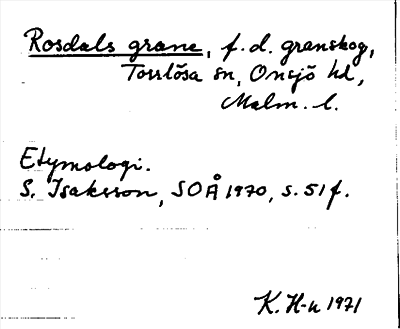 Rosdals grane, f.d. granskog,
Torrlösa sn, Onsjö hd,
Malm. l.
Etymologi.
S. Isaksson, SOÅ 1970, s. 51 f.
K. H-n 1971